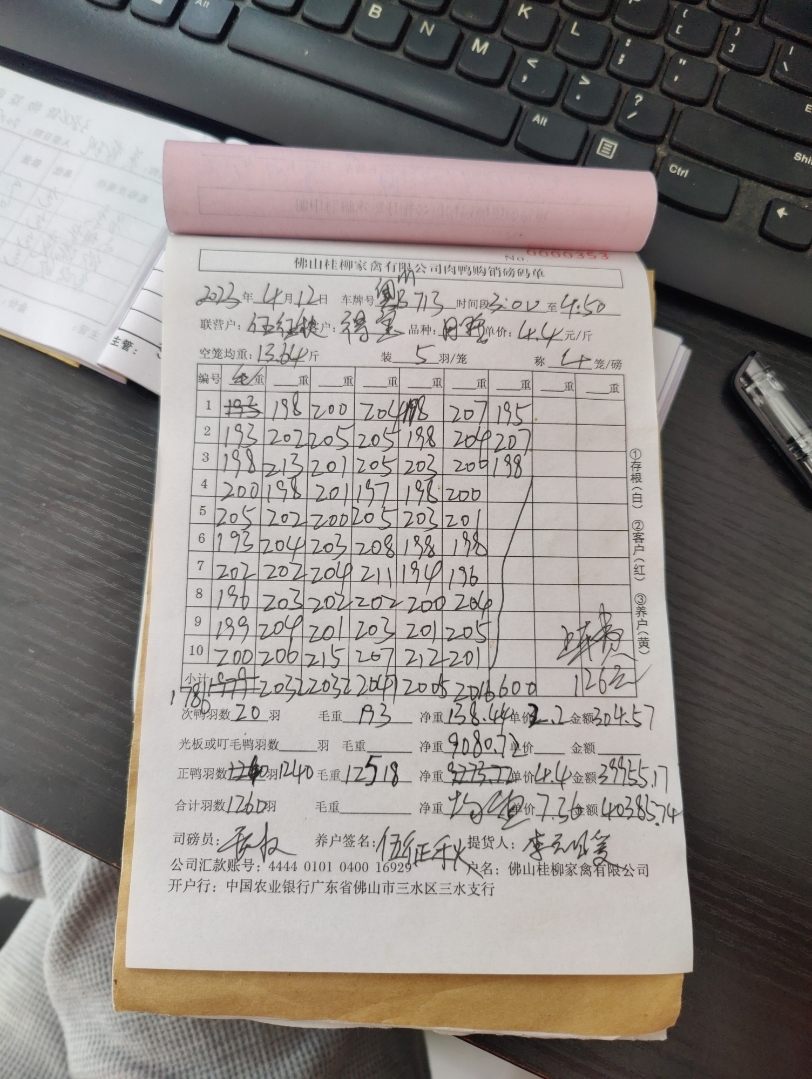 No 0000353
佛山桂柳家禽有限公司肉鸭购销磅码单
2023年4月12日 车牌号 B713 时间段 3:00 至 4:50
联营户: 户: 品种: 单价: 4.4 元/斤
空笼均重: 13.64 斤 装 5 羽/笼 称 4 笼/磅
编号 重 重 重 重 重 重 重 重 重
1 193 198 200 204 198 207 195
2 193 202 205 205 198 204 207
3 198 213 201 205 203 200 198
4 200 198 201 197 196 200
5 205 202 200 205 203 201
6 193 204 203 208 198 198
7 202 202 204 211 194 196
8 196 203 202 202 200 204
9 199 204 201 203 201 205
10 200 206 215 207 212 201
小计 1786 2032 2032 2047 2005 2016 600 126
①存根(白) ②客户(红) ③养户(黄)
次鸭羽数 20 羽 毛重 193 净重 138.44 单价 2.2 金额 304.57
光板或叮毛鸭羽数 羽 毛重 净重 9080.72 单价 金额
正鸭羽数 1240 羽 1240 毛重 12518 净重 单价 4.4 金额 39955.17
合计羽数 1260 羽 毛重 净重 均重 单价 7.36 金额 40385.74
司磅员: 养户签名: 提货人:
公司汇款账号: 4444 0101 0400 16929 户名: 佛山桂柳家禽有限公司
开户行: 中国农业银行广东省佛山市三水区三水支行
主管:
B
N
M
K
L
Alt
Ctrl
Shi